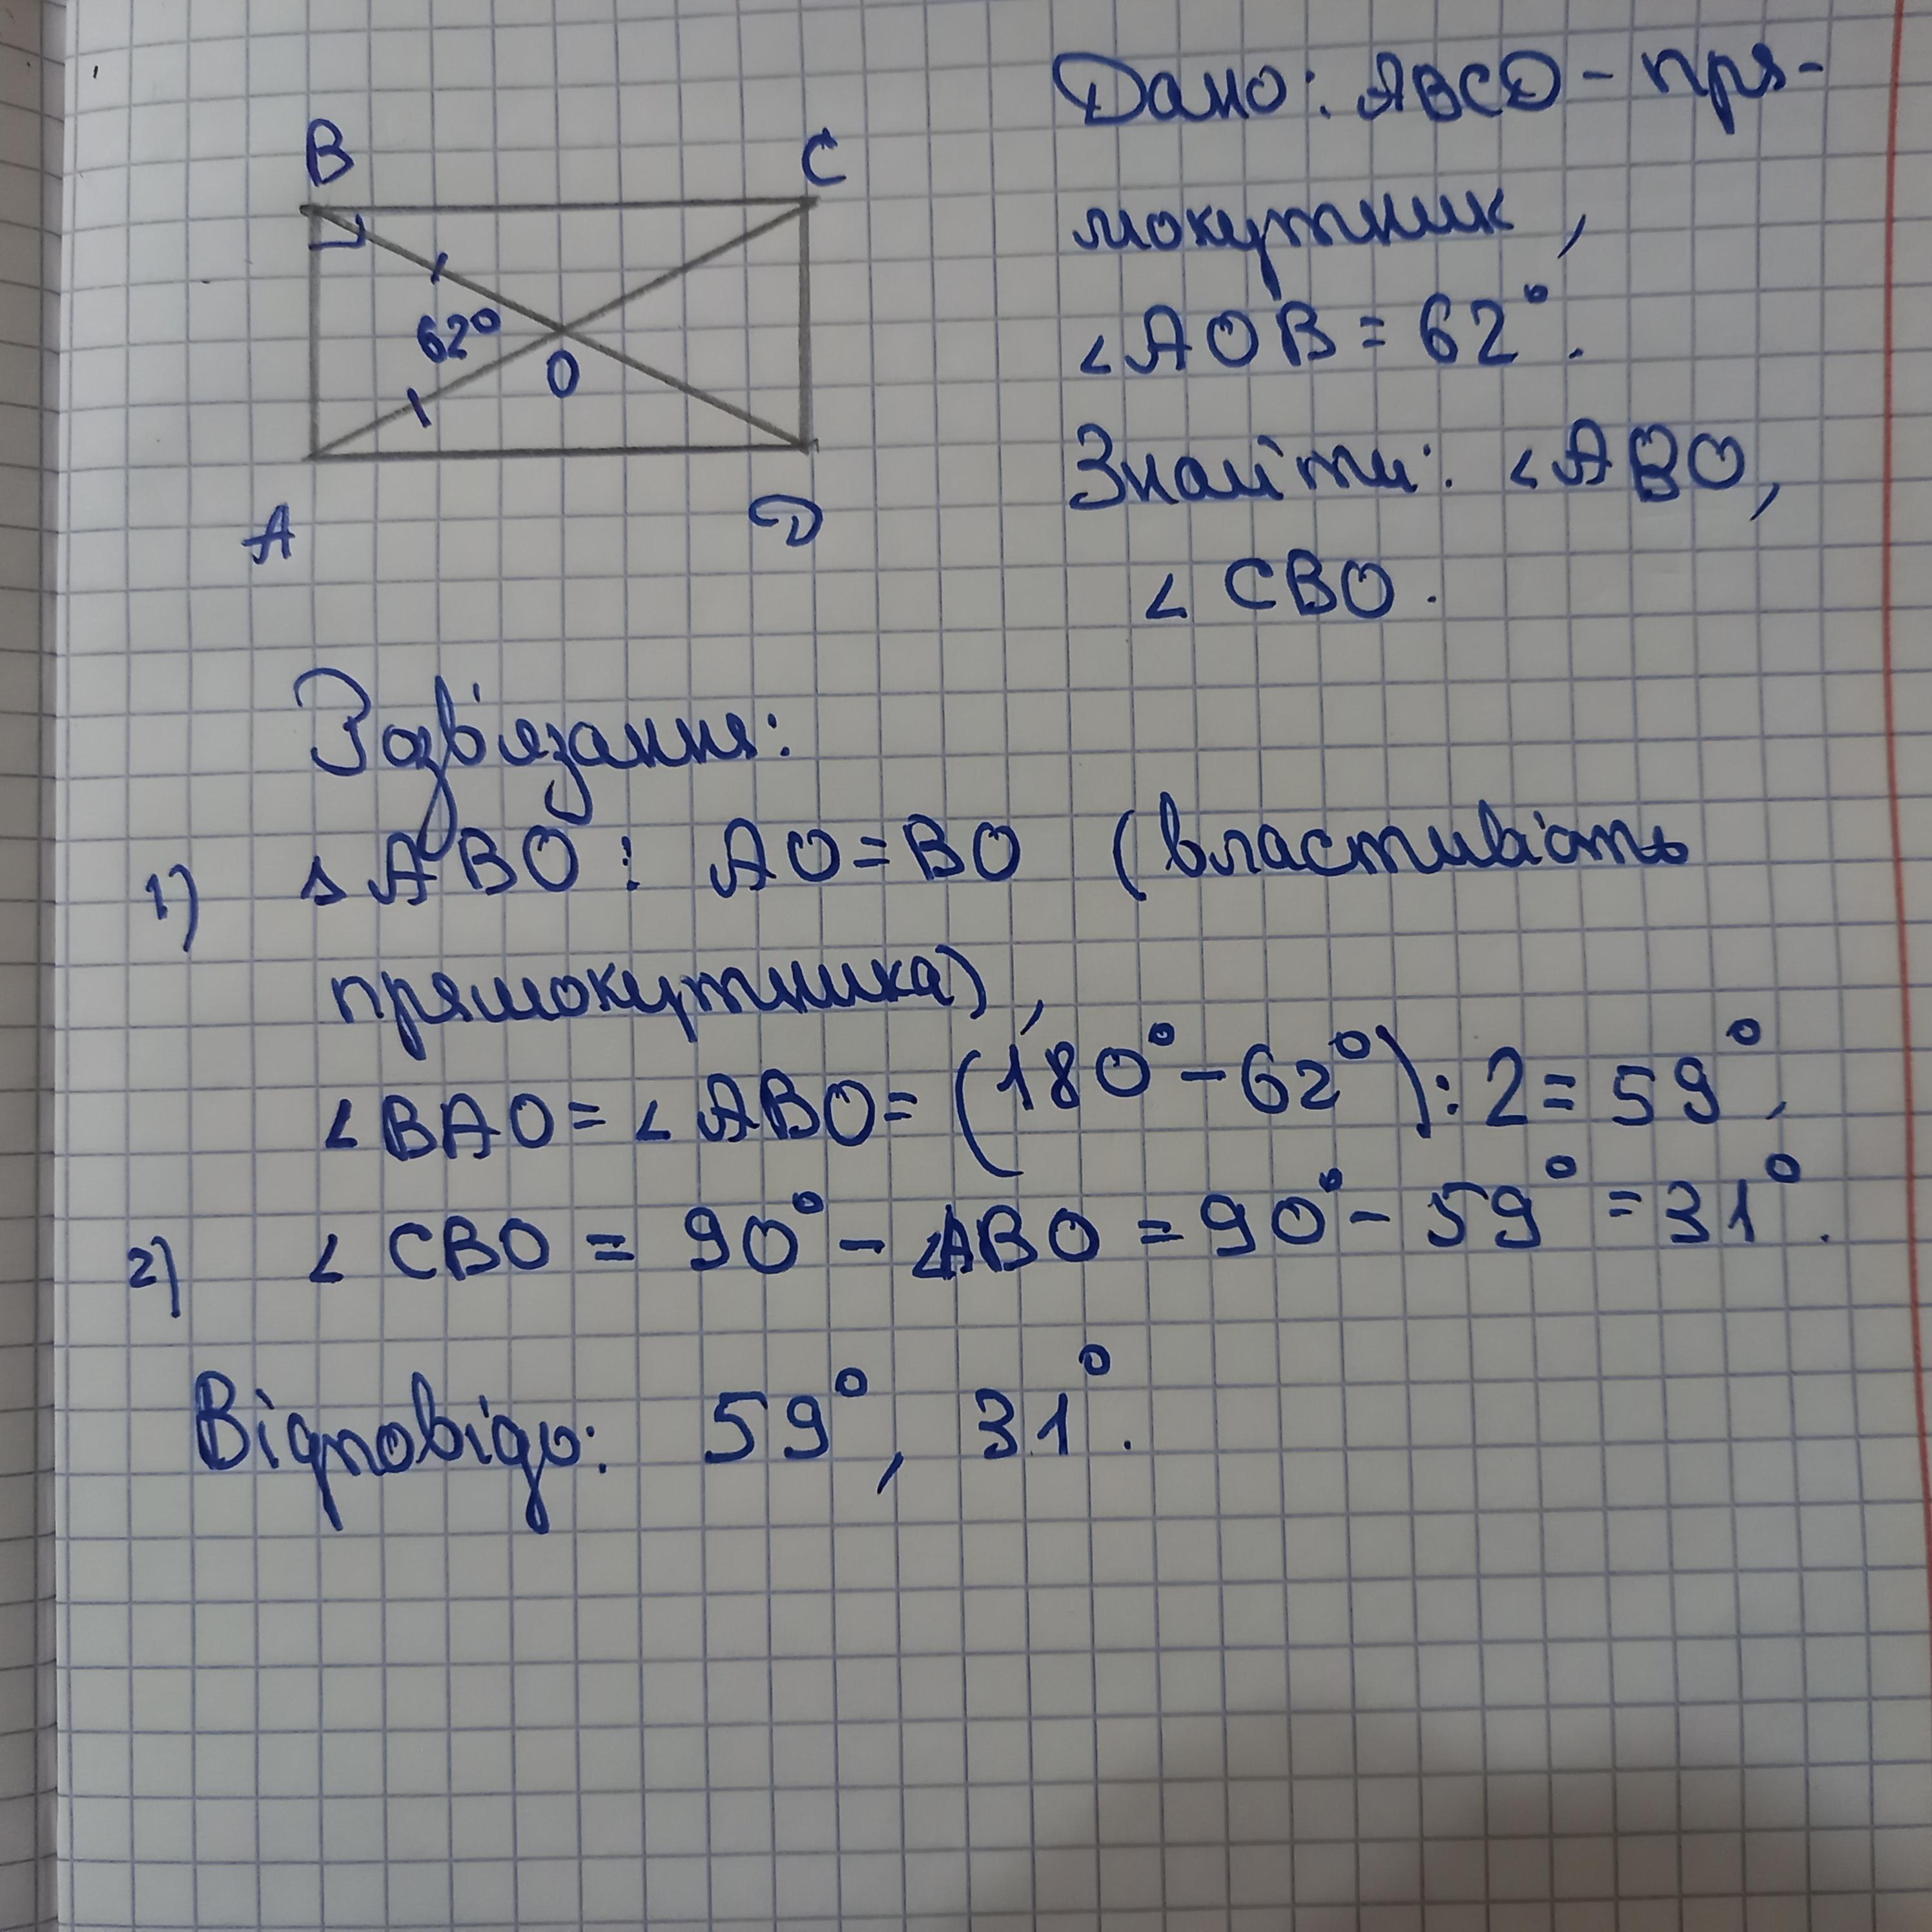 B
C
62°
O
A
D
Дано: ABCD - пря-
мокутник,
∠AOB = 62°.
Знайти: ∠ABO,
∠CBO.
Розв'язання:
1) △ABO: AO=BO (властивість
прямокутника),
∠BAO=∠ABO=(180°-62°):2=59°,
2) ∠CBO = 90° - ∠ABO = 90° - 59° = 31°.
Відповідь: 59°, 31°.